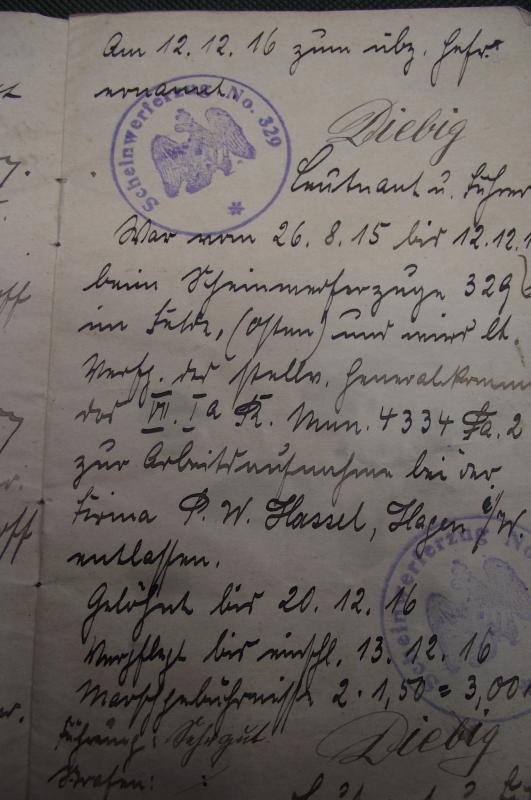 Am 12.12.16 zum übz. Gefr.
ernannt.
Scheinwerferzug No. 329
Diebig
Leutnant u. Führer
War vom 26.8.15 bis 12.12.1
beim Scheinwerferzuge 329
im Felde, (Osten) und wird lt.
Verfg. des stellv. Generalkomman
dos VII. Ia K. Mun. 4334 Fa. 2
zur Arbeitsaufnahme bei der
Firma P. W. Hassel, Hagen i/W.
entlassen.
Gelöhnt bis 20.12.16
Scheinwerferzug No
Verpflegt bis einschl. 13.12.16
Marschgebührnisse 2 · 1,50 = 3,00
Führung: Sehr gut
Diebig
Strafen: